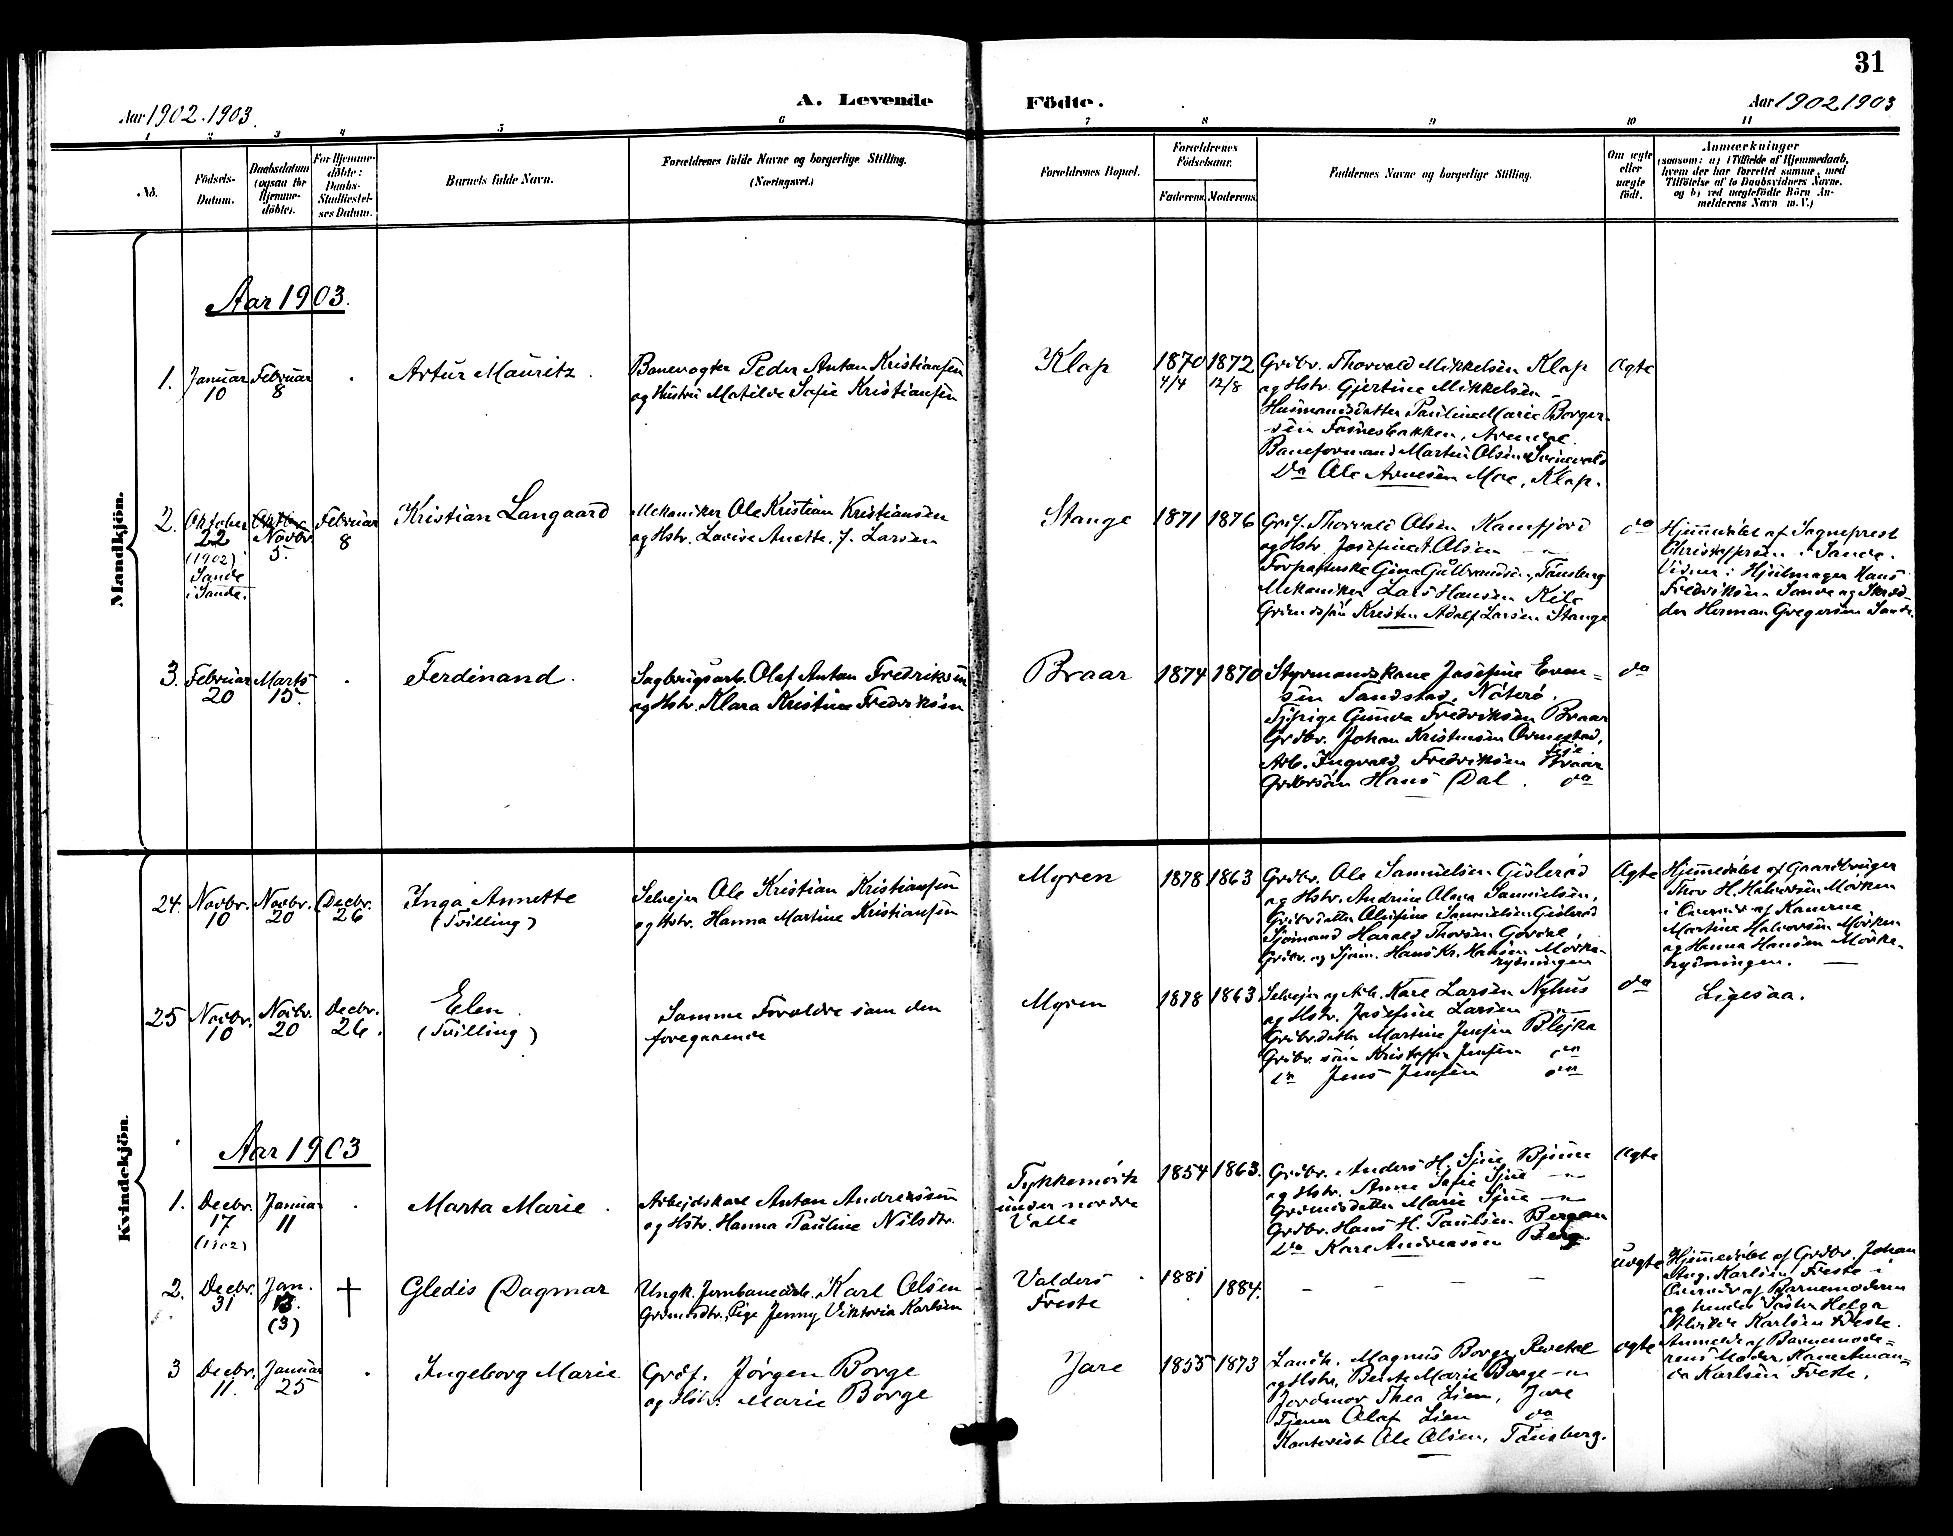 31
A. Levende Födte.
Aar 1902. 1903.
Aar 1902 1903
1 2 3 4 5 6 7 8 9 10 11
No.
Födsels-
Datum.
Daabsdatum
(ogsaa for
Hjemme-
döbte).
For Hjemme-
döbte:
Daabs-
Stadfæstel-
ses Datum.
Barnets fulde Navn.
Forældrenes fulde Navne og borgerlige Stilling.
(Næringsvei.)
Forældrenes Bopæl.
Forældrenes
Födselsaar.
Faderens Moderens.
Faddernes Navne og borgerlige Stilling.
Om ægte
eller
uægte
født.
Anmærkninger
(saasom: a) i Tilfælde af Hjemmedaab,
hvem der har forrettet samme, med
Tilföielse af to Daabsvidners Navne,
og b) ved uægtefödte Börn An-
melderens Navn m. V.)
Mandkjön.
Aar 1903.
1.
Januar
10
Februar
8
Artur Mauritz
Banevogter Peder Anton Kristiansen
og Hustru Matilde Sofie Kristiansen
Klop
1870
4/4
1872
12/8
Grdbr. Thorvald Mikkelsen Klop
og Hstr. Gjertine Mikkelsen
Husmandsdatter Pauline Marie Borger-
sen Fosnesbakken, Arendal.
Baneformand Martin Olsen
Do Ole Arnesen Moe, Klop.
Ægte
2.
Oktober
22
(1902)
Sande
i Sande.
Oktbr
Novbr.
5.
Februar
8
Kristian Langaard
Mekaniker Ole Kristian Kristiansen
og Hstr. Lovise Anette, f. Larsen
Stange
1871
1876
Grdf. Thorvald Olsen Ramfjord
og Hstr. Josefine A. Olsen
Forpagterske Gina Gulbrandsen, Tönsberg
Mekaniker Lars Hansen Kile
Grdmdssön Kristen Adolf Larsen Stange
do
Hjemmedöbt af Sogneprest
Christophersen i Sande.
Vidner: Hjulmager Hans
Fredriksen Sande og Skræd-
der Herman Gregersen Sande.
3.
Februar
20
Marts
15.
Ferdinand.
Sagbrugsarb. Olaf Anton Fredriksen
og Hstr. Klara Kristine Fredriksen
Braar
1874
1870
Styrmandskone Josefine Even-
sen Sandstad, Nöterö.
Tjpige Gunda Fredriksen Braar
Grdbr. Johan Kristensen Ormestad,
Arb. Ingvald Fredriksen Braar
Grdbrsön Hans Dal. do
do
Kvindekjön.
24.
Novbr.
10
Novbr.
20
Decbr.
26
Inga Annette
(Tvilling)
Selvejer Ole Kristian Kristiansen
og Hstr. Hanna Martine Kristiansen
Myren
1878
1863
Grdbr. Ole Samuelsen Gislerød
og Hstr. Andrine Olava Samuelsen,
Grdbrdatter Olufine Samuelsen Gislerød
Sjömand Harald Thorsen Gordal,
Grdbr. og Sjöm. Hans Kr. Hansen Mörke-
rydningen
Ægte
Hjemmedöbt af Gaardbruger
Thor H. Halvorsen Mörken
i Overvær af Konerne
Martine Halvorsen Mörken
og Hanna Hansen Mörke-
rydningen.
25
Novbr.
10
Novbr.
20
Decbr.
26.
Elen
(Tvilling)
Samme Foreldre som den
foregaaende
Myren
1878
1863
Selvejer og Arb. Kare Larsen Nyhus
og Hstr. Josefine Larsen
Grdbr.datter Martine Jensen Blejka
Grdbr. sön Kristoffer Jensen do
do Jens Jensen do
do
Ligesaa.
Aar 1903
1.
Decbr.
17
(1902)
Januar
11
Marta Marie
Arbejdskarl Anton Andreasen
og Hstr. Hanna Pauline Nilsdtr.
Tykkemörk
under nordre
Valle
1854
1863.
Grdbr. Anders H. Sjue Bjune
og Hstr. Anne Sofie Sjue
Grdmdsdatter Marie Sjue
Grdbr. Hans H. Paulsen Bergan
Do Kare Andreassen Berg.
Ægte
2.
Decbr.
31
Jan.
13.
(3)
+
Gledis Dagmar
Ungk. Jernbanearb. Karl Olsen
Grdmdsdtr. Pige Jenny Viktoria Karlsen
Valders
Freste
1881
1884.
uægte
Hjemmedöbt af Grdbr. Johan
Aug. Karlsen Freste i
Overvær af Barnemoderen
og hendes Söster Helga
Karlsen Freste.
Anmeldt af Barnemode-
rens Moder, Kone Aman-
da Karlsen Freste.
3
Decbr.
11.
Januar
25
Ingeborg Marie
Grdf. Jørgen Borge
og Hstr. Marie Borge
Jare
1855
1873
Landh. Magnus Borge Revetal
og Hstr. Berte Marie Borge
Jordmor Thea Lien, Jare
Tjener Olaf Lien do
Kontorist Ole Olsen, Tönsberg.
ægte